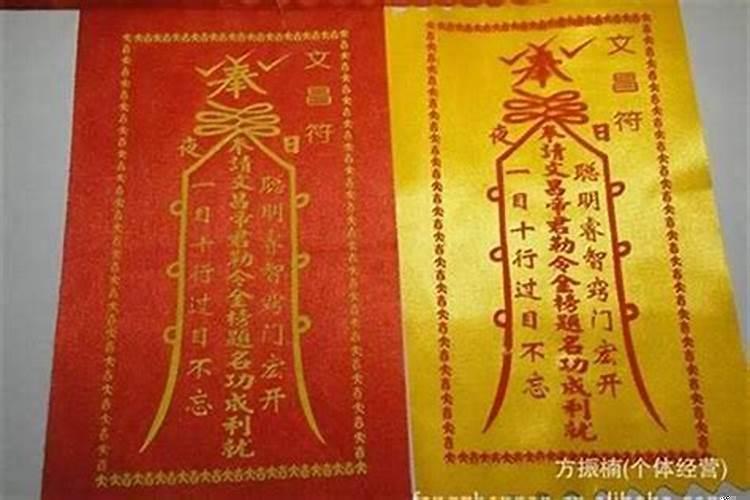 文昌符
奉
夜 日
聪明睿智窍门宏开
奉請文昌帝君勒令金榜題名功成利就
一目十行过目不忘
文昌符
奉
夜 日
聪明睿智窍门宏开
奉請文昌帝君勒令金榜題名功成利就
一目十行过目不忘
方振楠(个体经营)